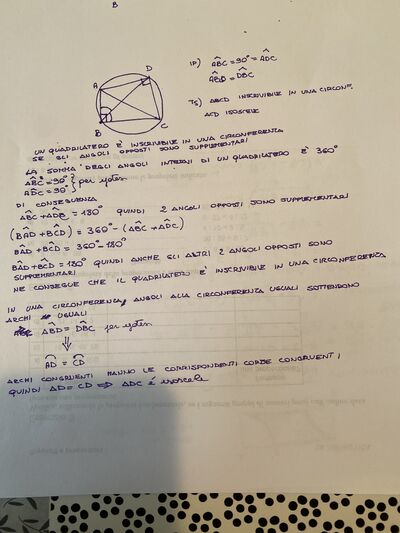 B
D
A
B
C
IP) ABC = 90° = ADC
ABD = DBC
TS) ABCD INSCRIVIBILE IN UNA CIRCONF.
ACD ISOSCELE
UN QUADRILATERO È INSCRIVIBILE IN UNA CIRCONFERENZA
SE GLI ANGOLI OPPOSTI SONO SUPPLEMENTARI
LA SOMMA DEGLI ANGOLI INTERNI DI UN QUADRILATERO È 360°
ABC = 90° } per ipotesi
ADC = 90°
DI CONSEGUENZA
ABC + ADB = 180° QUINDI 2 ANGOLI OPPOSTI SONO SUPPLEMENTARI
(BAD + BCD) = 360° - (ABC + ADC)
BAD + BCD = 360° - 180°
BAD + BCD = 180° QUINDI ANCHE GLI ALTRI 2 ANGOLI OPPOSTI SONO
SUPPLEMENTARI
NE CONSEGUE CHE IL QUADRILATERO È INSCRIVIBILE IN UNA CIRCONFERENZA
IN UNA CIRCONFERENZA, ANGOLI ALLA CIRCONFERENZA UGUALI SOTTENDONO
ARCHI UGUALI
ABD = DBC per ipotesi
⇓
AD = CD
ARCHI CONGRUENTI HANNO LE CORRISPONDENTI CORDE CONGRUENTI
QUINDI AD = CD ⇒ ADC è isoscele